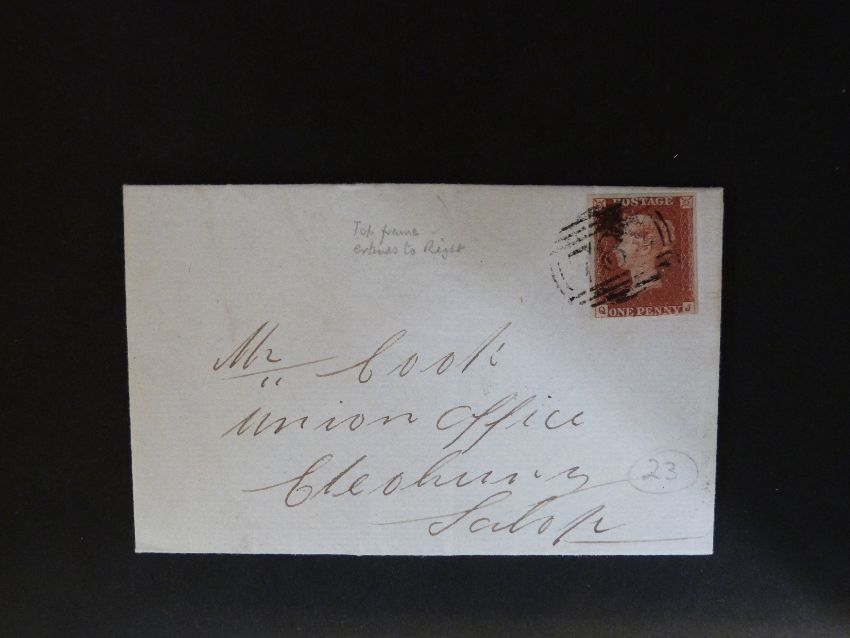 POSTAGE
Top frame
extends to Right
Q ONE PENNY J
Mr Cook
Union Office
Cleobury
Salop
23